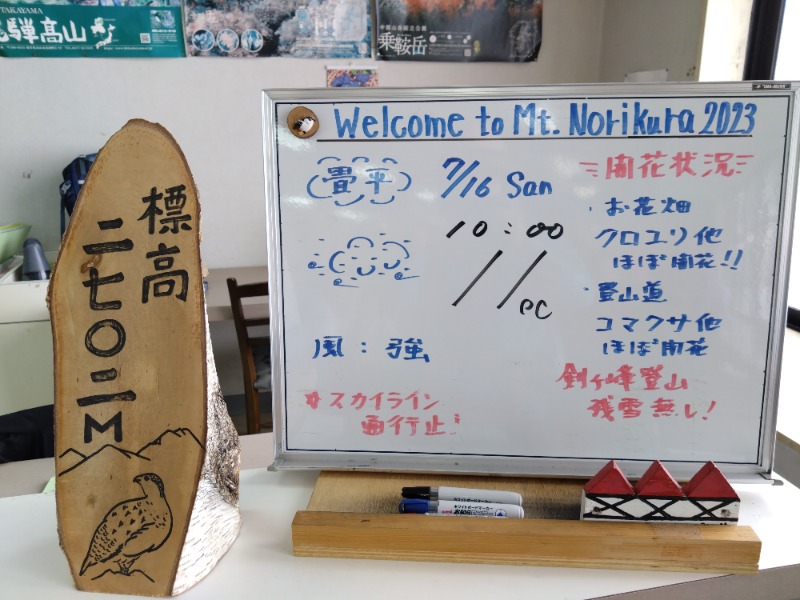 TAKAYAMA
飛騨高山
乗鞍岳
標高
二七〇二M
Welcome to Mt. Norikura 2023
畳平
7/16 Sun
10:00
11℃
風：強
※スカイライン
通行止
開花状況
・お花畑
クロユリ他
ほぼ開花!!
・登山道
コマクサ他
ほぼ開花
剣ヶ峰登山
残雪無し!
ホワイトボードマーカー